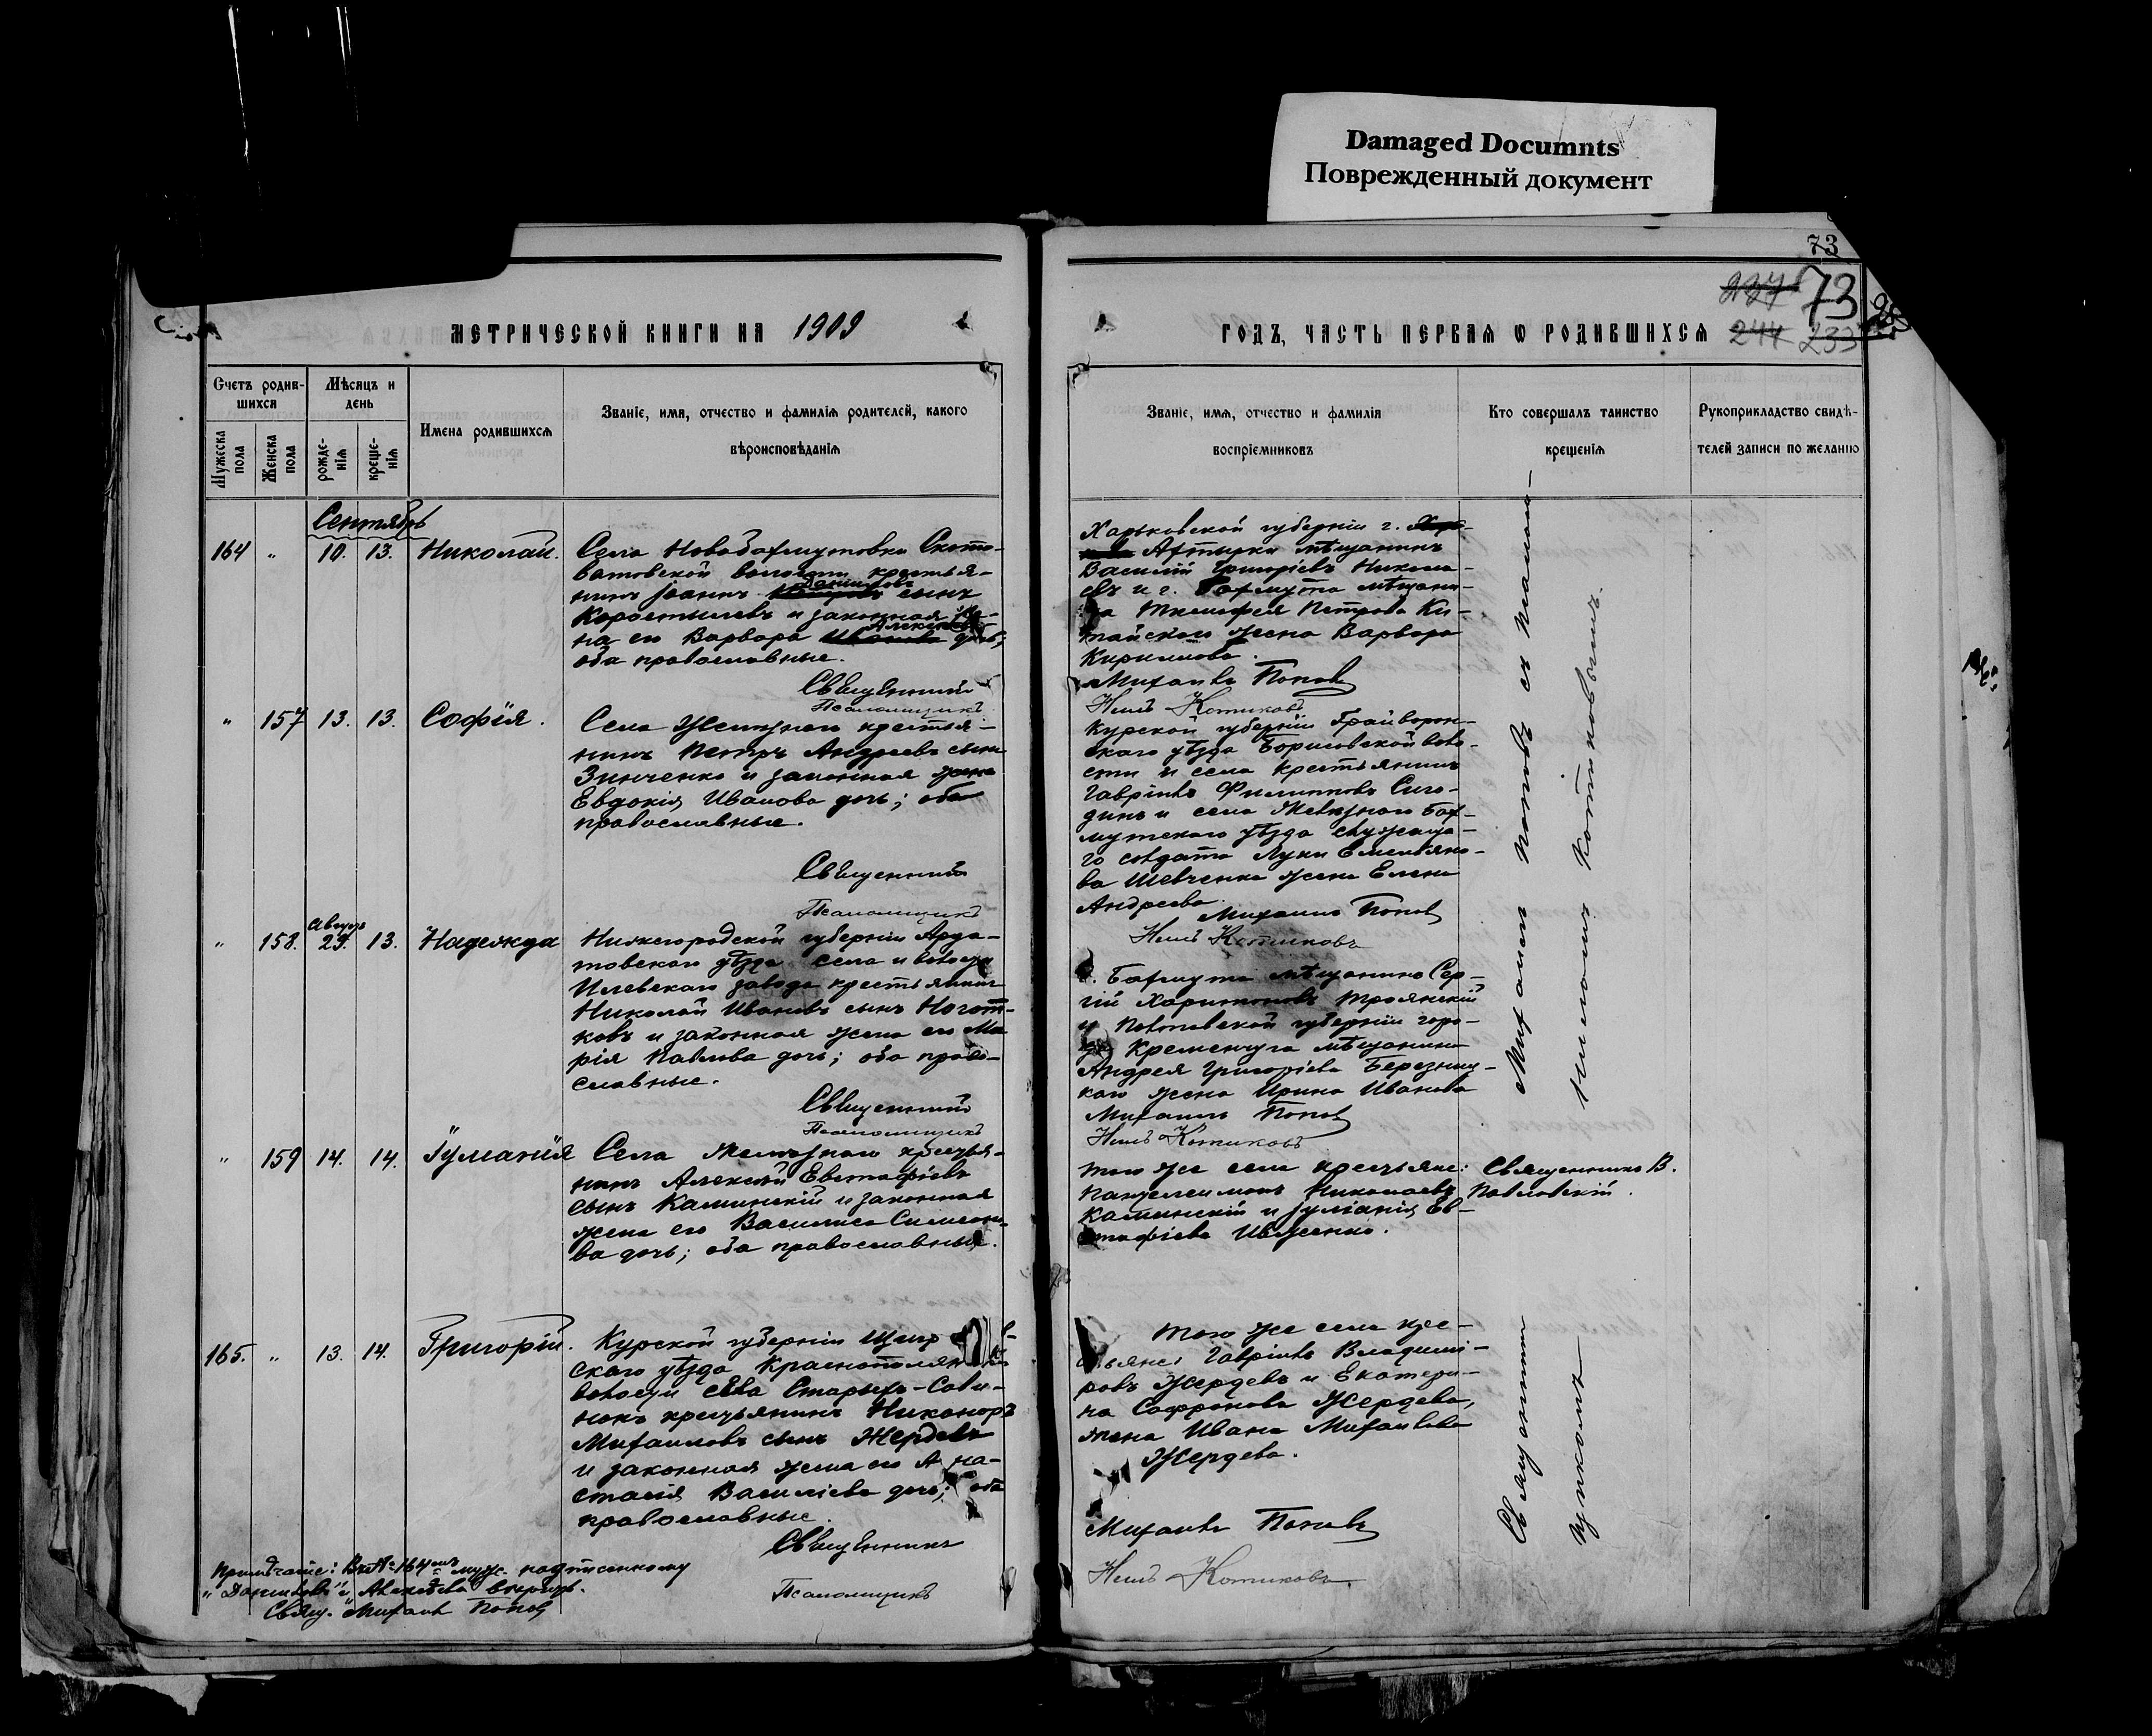 Damaged Documnts
Поврежденный документ
73
237 73
244 233
МЕТРИЧЕСКОЙ КНИГИ НА 1909
ГОДЪ, ЧАСТЬ ПЕРВАЯ Ѡ РОДИВШИХСЯ
Счетъ родив-
шихся
Мѣсяцъ и
день
Имена родившихся
Званіе, имя, отчество и фамилія родителей, какого
вѣроисповѣданія
Мужеска
пола
Женска
пола
рожде-
нія
креще-
нія
Званіе, имя, отчество и фамилія
воспріемниковъ
Кто совершалъ таинство
крещенія
Рукоприкладство свидѣ-
телей записи по желанію
Сентябрь
164 " 10. 13. Николай.
Села Новобахмутовки Ското-
ватовской волости крестья-
Даніиловъ
нинъ Іоаннъ сынъ
Коростылевъ и законная же-
Алексѣева
на его Варвара Иванова дочь;
оба православные.
Священникъ
Псаломщикъ
Харьковской губерніи г. Харь-
кова Ахтырки мѣщанинъ
Василій Григорьевъ Никола-
евъ и г. Бахмута мѣщани-
на Тимофея Петрова Ки-
тайскаго жена Варвара
Кириллова.
Михаилъ Попов
Котиковъ
" 157 13. 13. Софія.
Села Желѣзнаго крестья-
нинъ Петръ Андреевъ сынъ
Зинченко и законная жена
Евдокія Иванова дочь; оба
православные.
Священникъ
Псаломщикъ
Курской губерніи Грайворон-
скаго уѣзда Борисовской воло-
сти и села крестьянинъ
Гавріилъ Филипповъ Сиго-
динъ и села Желѣзнаго Бах-
мутскаго уѣзда служаща-
го солдата Луки Емельяно-
ва Шевченка жена Елена
Андреева.
Михаилъ Попов
Котиковъ
Августъ
" 158. 29. 13. Надежда
Нижегородской губерніи Арда-
товскаго уѣзда села и волости
Илевскаго завода крестьянинъ
Николай Ивановъ сынъ Ногот-
ковъ и законная жена его Ма-
рія Павлова дочь; оба право-
славные.
Священникъ
Псаломщикъ
г. Бахмута мѣщанинъ Сер-
гій Харитоновъ Троянскій
и Полтавской губерніи горо-
да Кременчуга мѣщанина
Андрея Григорьева Березниц-
каго жена Ирина Иванова
Михаилъ Попов
Котиковъ
Михаилъ Поповъ съ Псалом-
щикомъ Котиковымъ.
" 159 14. 14. Іуліанія
Села Желѣзнаго крестья-
нинъ Алексѣй Евстафіевъ
сынъ Каминскій и законная
жена его Василиса Симеоно-
ва дочь; оба православные.
того же села крестьяне:
Пантелеимонъ Николаевъ
Каминскій и Іуліанія Ев-
стафіева Ивженко.
Священникъ В.
Павловскій.
165. " 13. 14. Григорій.
Курской губерніи Щигров-
скаго уѣзда Краснополянской
волости села Старыхъ-Сави-
нокъ крестьянинъ Никаноръ
Михаиловъ сынъ Жердевъ
и законная жена его Ана-
стасія Василіева дочь; оба
православные.
Священникъ
Псаломщикъ
того же села кре-
стьяне: Гавріилъ Владимі-
ровъ Жердевъ и Екатери-
на Софронова Жердева,
жена Ивана Михаилова
Жердева.
Михаилъ Поповъ
Котиковъ.
Священникъ
Примѣчаніе: Въ № 164омъ муж. надписанному
"Даніиловъ" и "Алексѣева" вѣрить.
Свящ. Михаилъ Попов